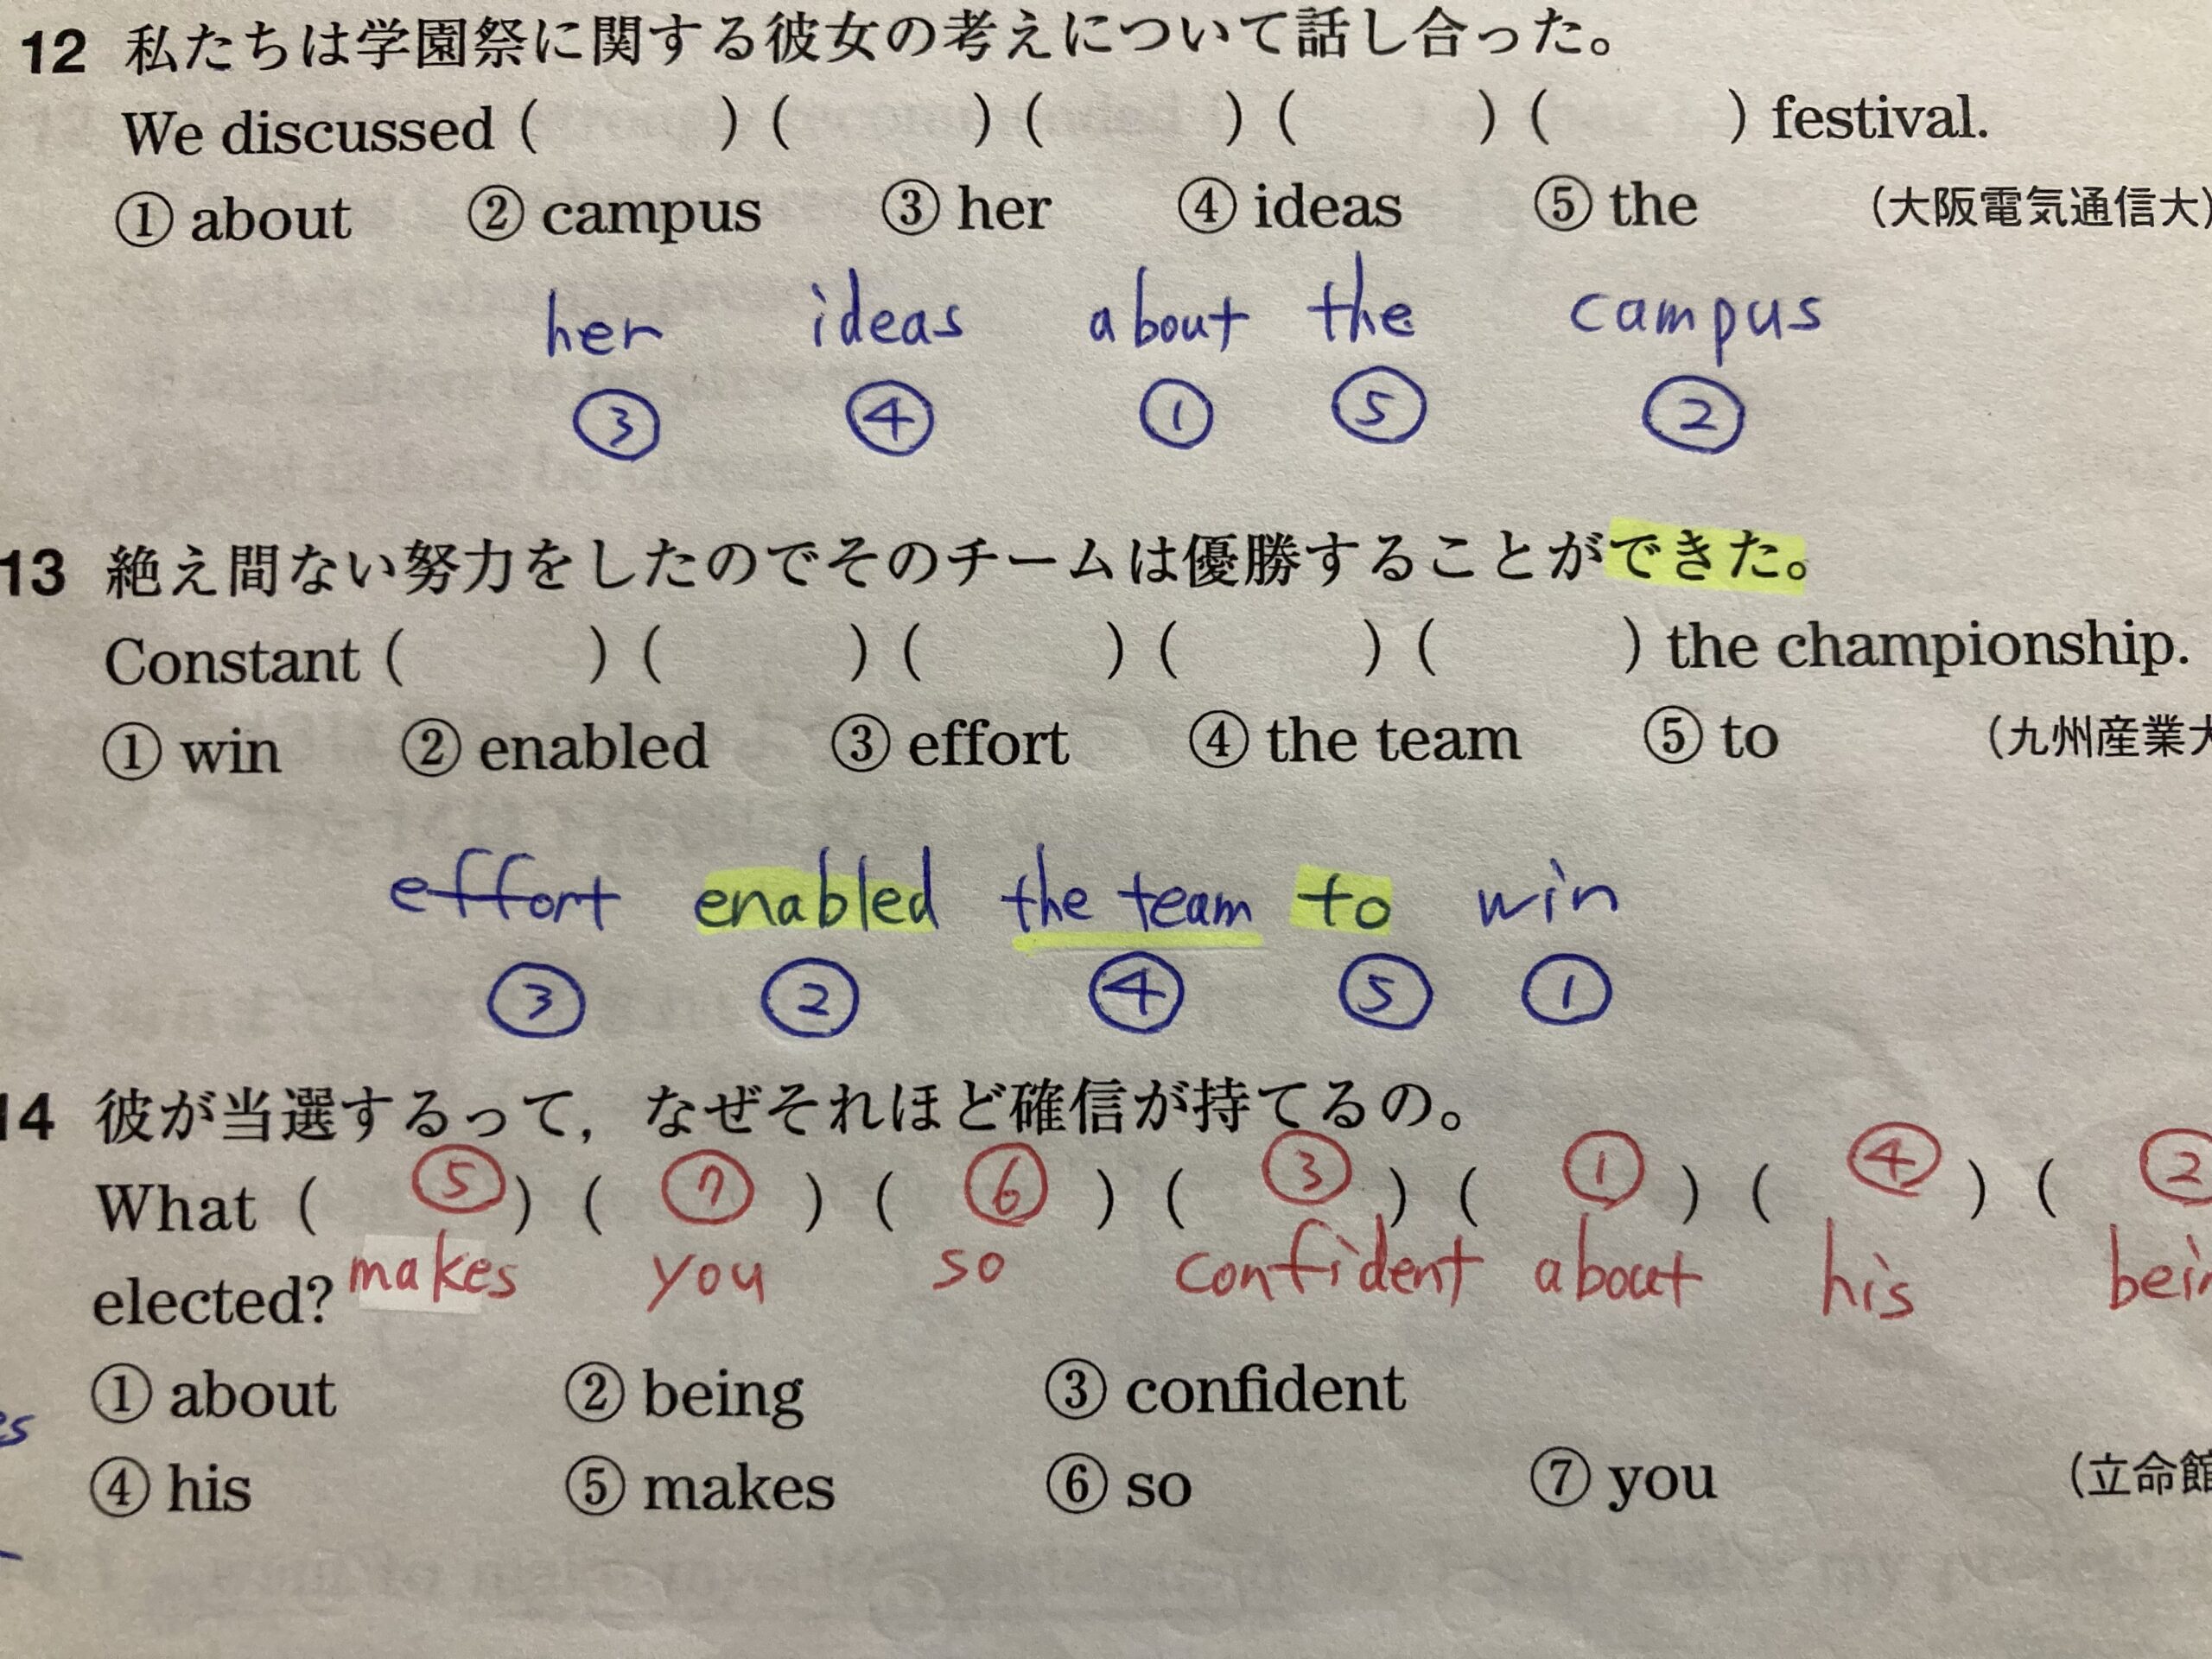 12 私たちは学園祭に関する彼女の考えについて話し合った。
We discussed ( ) ( ) ( ) ( ) ( ) festival.
① about ② campus ③ her ④ ideas ⑤ the (大阪電気通信大)
her ideas about the campus
③ ④ ① ⑤ ②
13 絶え間ない努力をしたのでそのチームは優勝することができた。
Constant ( ) ( ) ( ) ( ) ( ) the championship.
① win ② enabled ③ effort ④ the team ⑤ to (九州産業大
effort enabled the team to win
③ ② ④ ⑤ ①
14 彼が当選するって，なぜそれほど確信が持てるの。
What ( ⑤ ) ( ⑦ ) ( ⑥ ) ( ③ ) ( ① ) ( ④ ) ( ②
makes you so confident about his bein
elected?
① about ② being ③ confident
es
④ his ⑤ makes ⑥ so ⑦ you (立命館